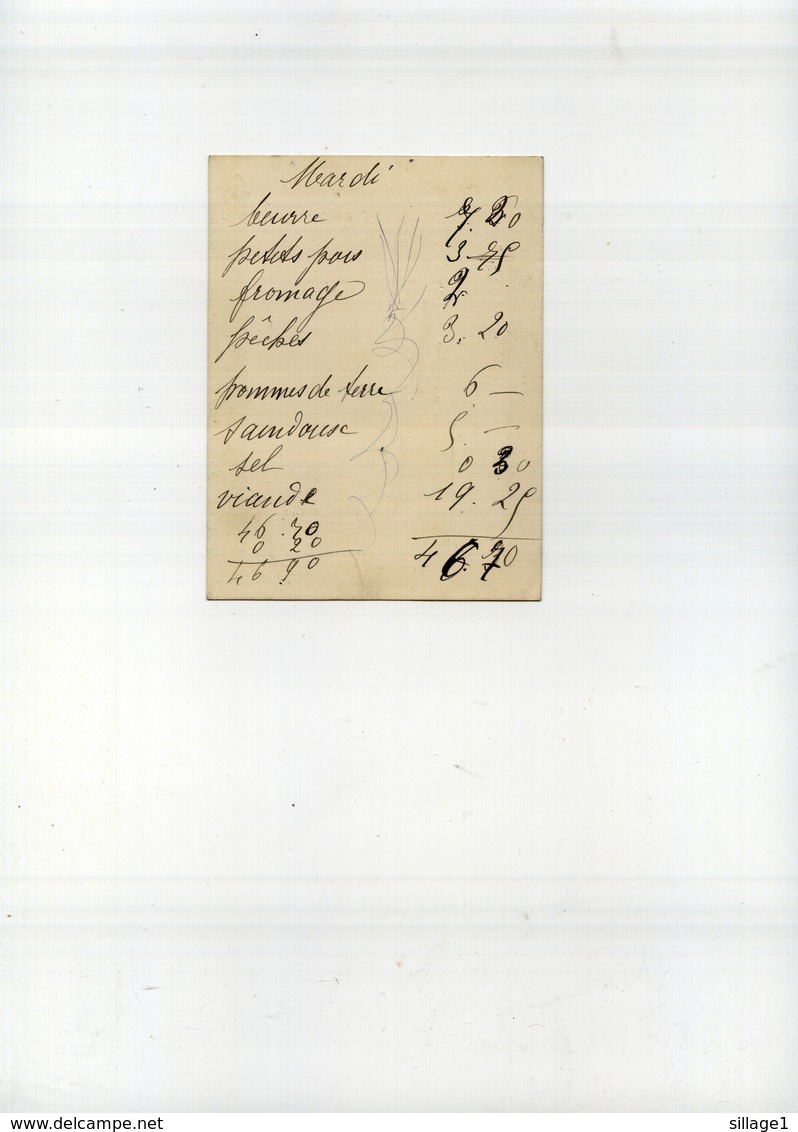 Mardi
beurre 7.20
petits pois 3.75
fromage 2
pêches 3.20
pommes de terre 6 —
saindouse 5. —
sel 0 30
viande 19.25
46.70
0 20
46 90
46.70
www.delcampe.net
sillage1